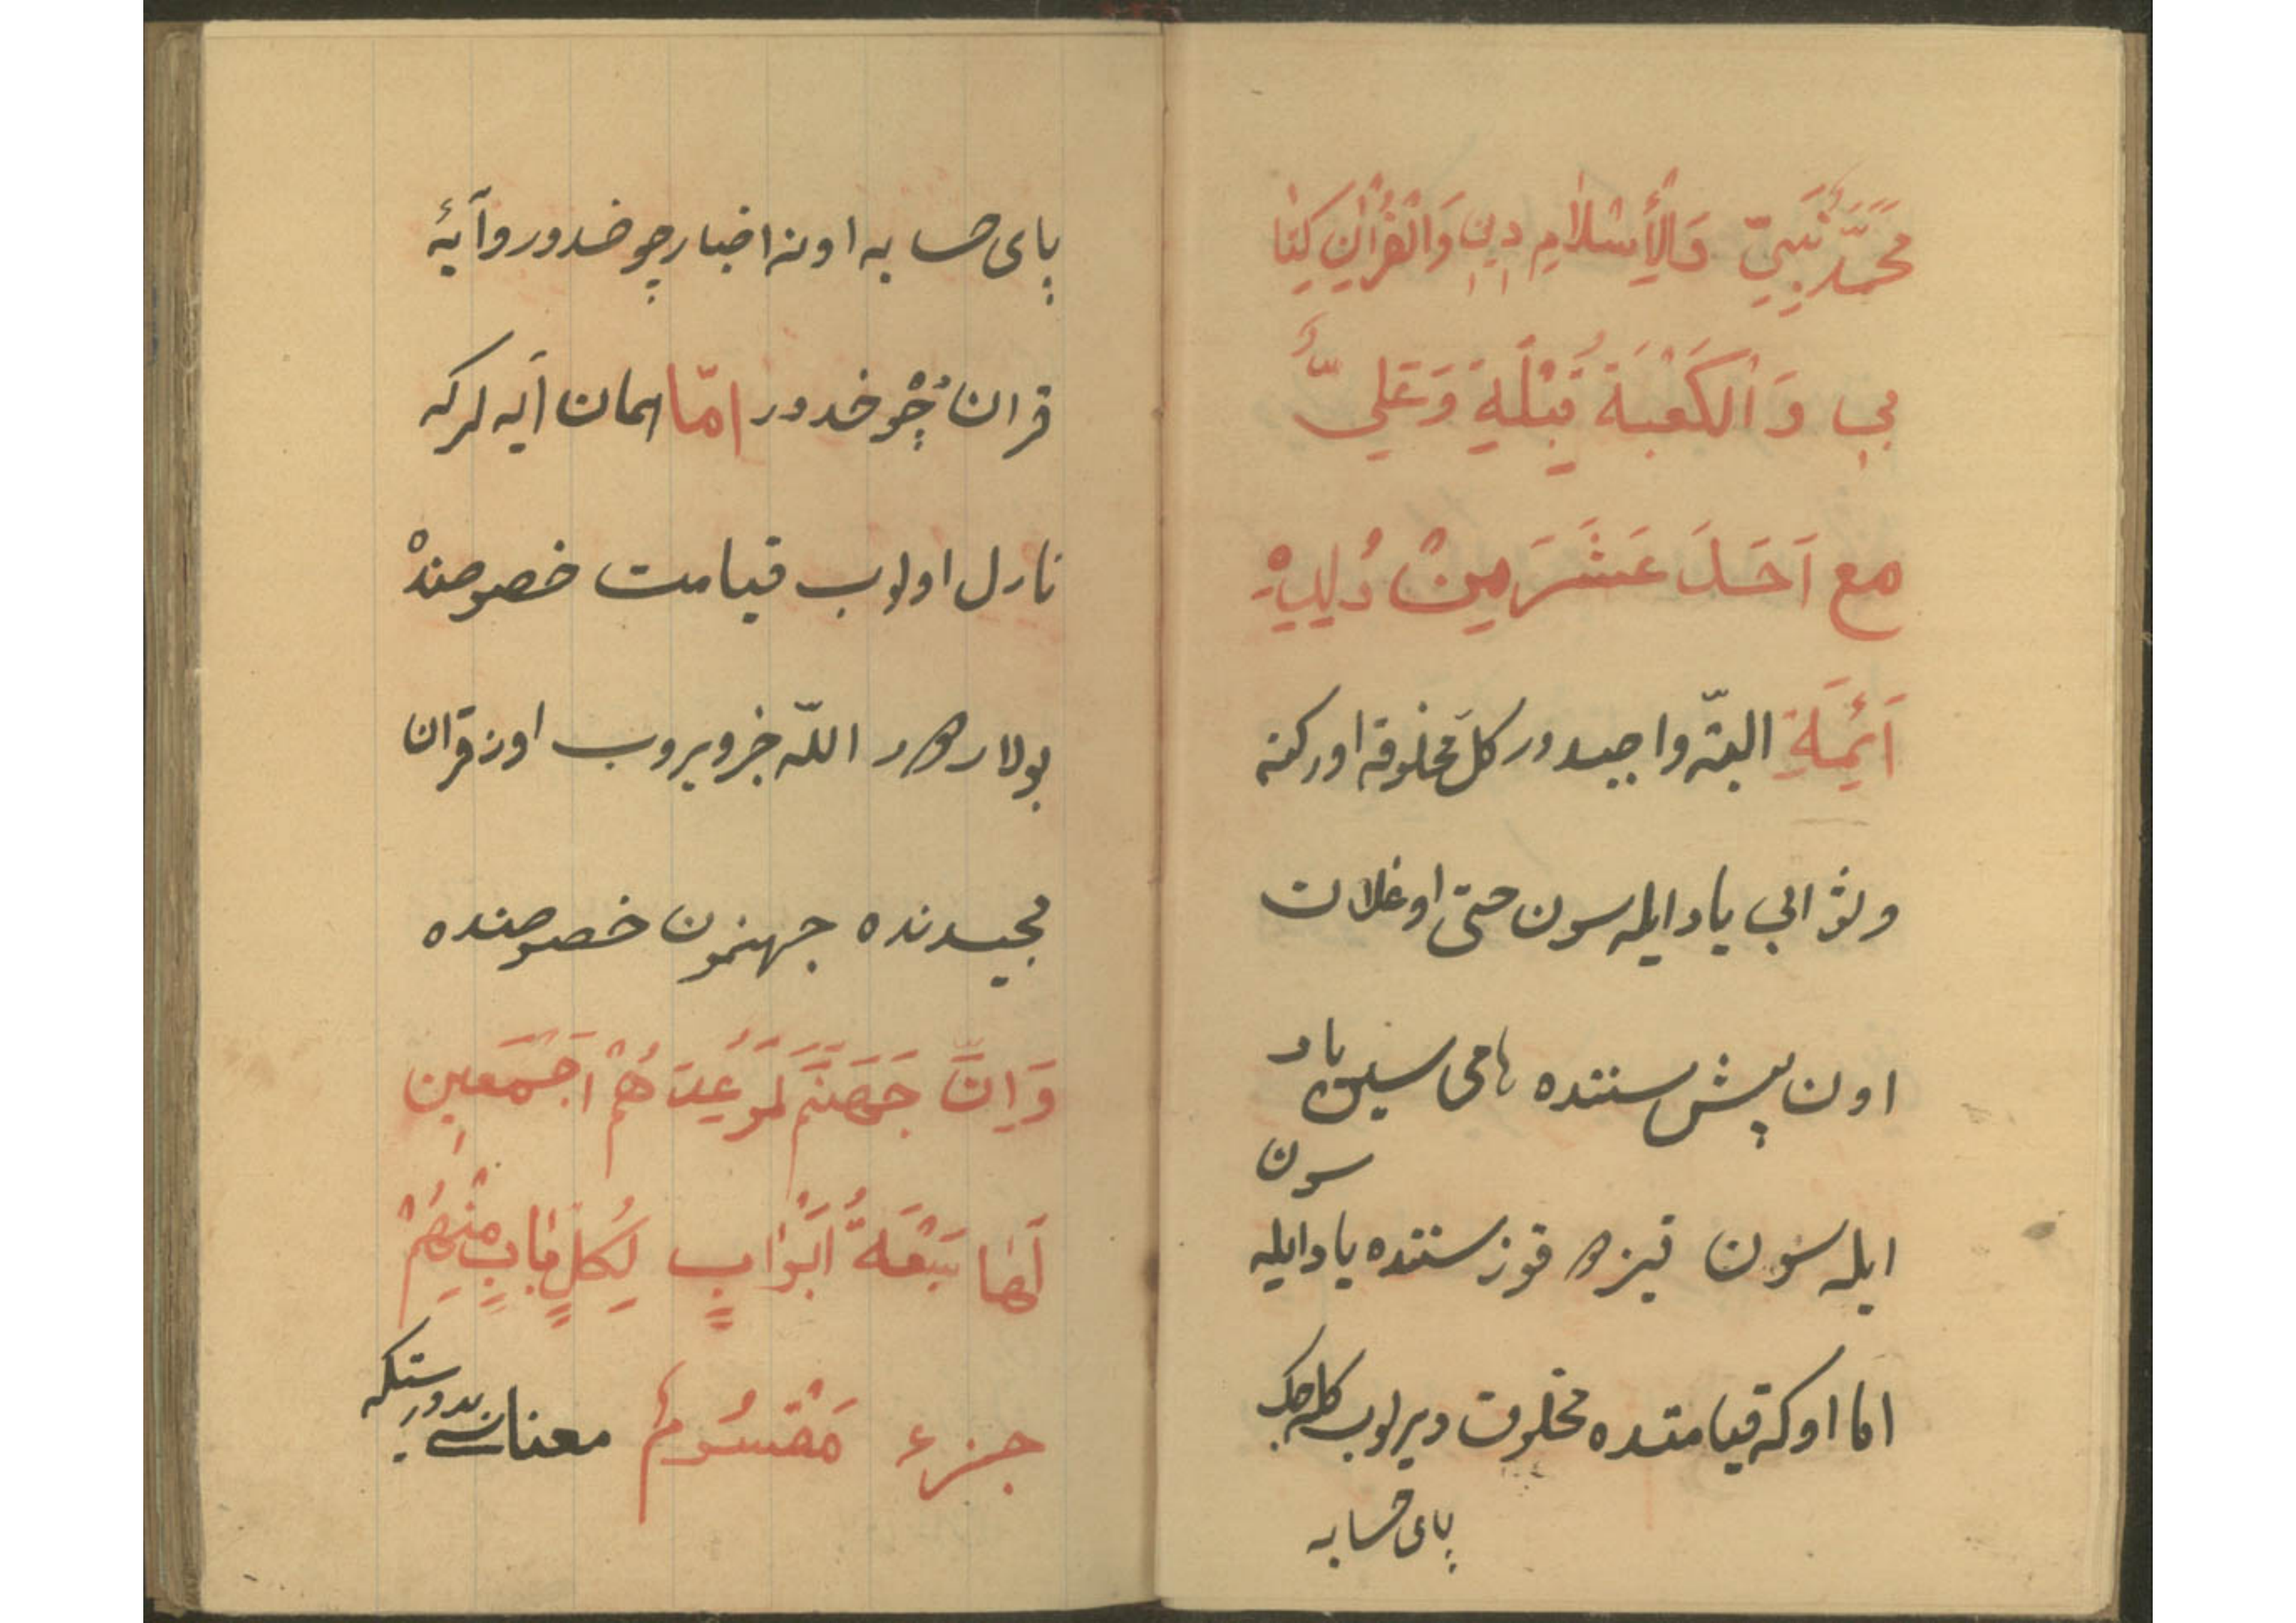 محمّد نَبِيّ وَالْأِسْلٰامِ دين وَالْقُرْاٰنِ كِتٰا
بي وَالْكَعْبَةَ قِبْلَةِ وَعَلِيّ
مع اَحَدَ عَشَرَ مِنْ
اَئِمَةِ البتّه واجبدور كلّ مخلوقه اوركنه
وثوابی ياد ايله سون حتّی اوغلان
اون پيش سننده هامی سين ياد
سون
ايله سون قيزهر قوز سننده ياد ايله
اما اوكه قيامتده مخلوق ديرلوب كله جك
پای حسابه
پای حسابه اونه اخبار چوخدور و آيهٔ
قران چوْخدور امّا همان آيه لركه
نازل اولوب قيامت خصوصندْ
بولاردور اللّه خبر ويروب اوز قران
مجيدنده جهنمون خصوصنده
وَاِنَّ جَهَنَّم لَمَوعِدَهُمْ اَجْمَعين
لَهٰا سَبْعَةُ اَبْوٰابٍ لِكُلِّ بٰابٍ مِنْهُمْ
جزء مَقْسُومٌ معناسی بدورستكه